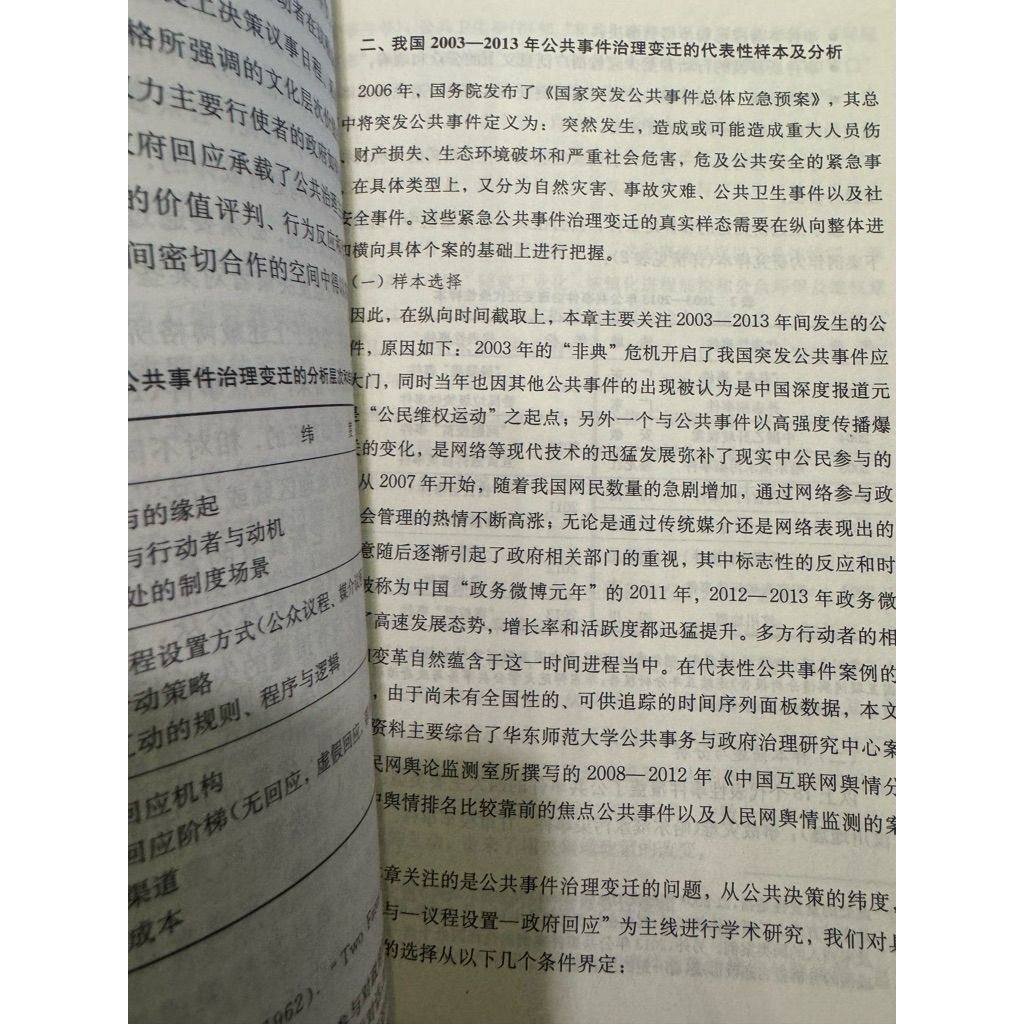 动者在
上决策议事日程、
格所强调的文化层次
力主要行使者的政府
府回应承载了公共治理
的价值评判、行为反应和
间密切合作的空间中得
公共事件治理变迁的分析层次
纬
与的缘起
与行动者与动机
处的制度场景
程设置方式(公众议程、媒介议
动策略
互动的规则、程序与逻辑
回应机构
回应阶梯(无回应,虚假回应,
渠道
成本
"Two Face
1962).
二、我国 2003—2013 年公共事件治理变迁的代表性样本及分析
2006 年，国务院发布了《国家突发公共事件总体应急预案》，其总
中将突发公共事件定义为：突然发生，造成或可能造成重大人员伤
、财产损失、生态环境破坏和严重社会危害，危及公共安全的紧急事
，在具体类型上，又分为自然灾害、事故灾难、公共卫生事件以及社
安全事件。这些紧急公共事件治理变迁的真实样态需要在纵向整体进
和横向具体个案的基础上进行把握。
（一）样本选择
因此，在纵向时间截取上，本章主要关注 2003—2013 年间发生的公
件，原因如下：2003 年的“非典”危机开启了我国突发公共事件应
大门，同时当年也因其他公共事件的出现被认为是中国深度报道元
是“公民维权运动”之起点；另外一个与公共事件以高强度传播爆
关的变化，是网络等现代技术的迅猛发展弥补了现实中公民参与的
从 2007 年开始，随着我国网民数量的急剧增加，通过网络参与政
会管理的热情不断高涨；无论是通过传统媒介还是网络表现出的
意随后逐渐引起了政府相关部门的重视，其中标志性的反应和时
被称为中国“政务微博元年”的 2011 年，2012—2013 年政务微
了高速发展态势，增长率和活跃度都迅猛提升。多方行动者的相
变革自然蕴含于这一时间进程当中。在代表性公共事件案例的
，由于尚未有全国性的、可供追踪的时间序列面板数据，本文
资料主要综合了华东师范大学公共事务与政府治理研究中心案
民网舆论监测室所撰写的 2008—2012 年《中国互联网舆情分
中舆情排名比较靠前的焦点公共事件以及人民网舆情监测的案
章关注的是公共事件治理变迁的问题，从公共决策的纬度，
与—议程设置—政府回应”为主线进行学术研究，我们对
的选择从以下几个条件界定：